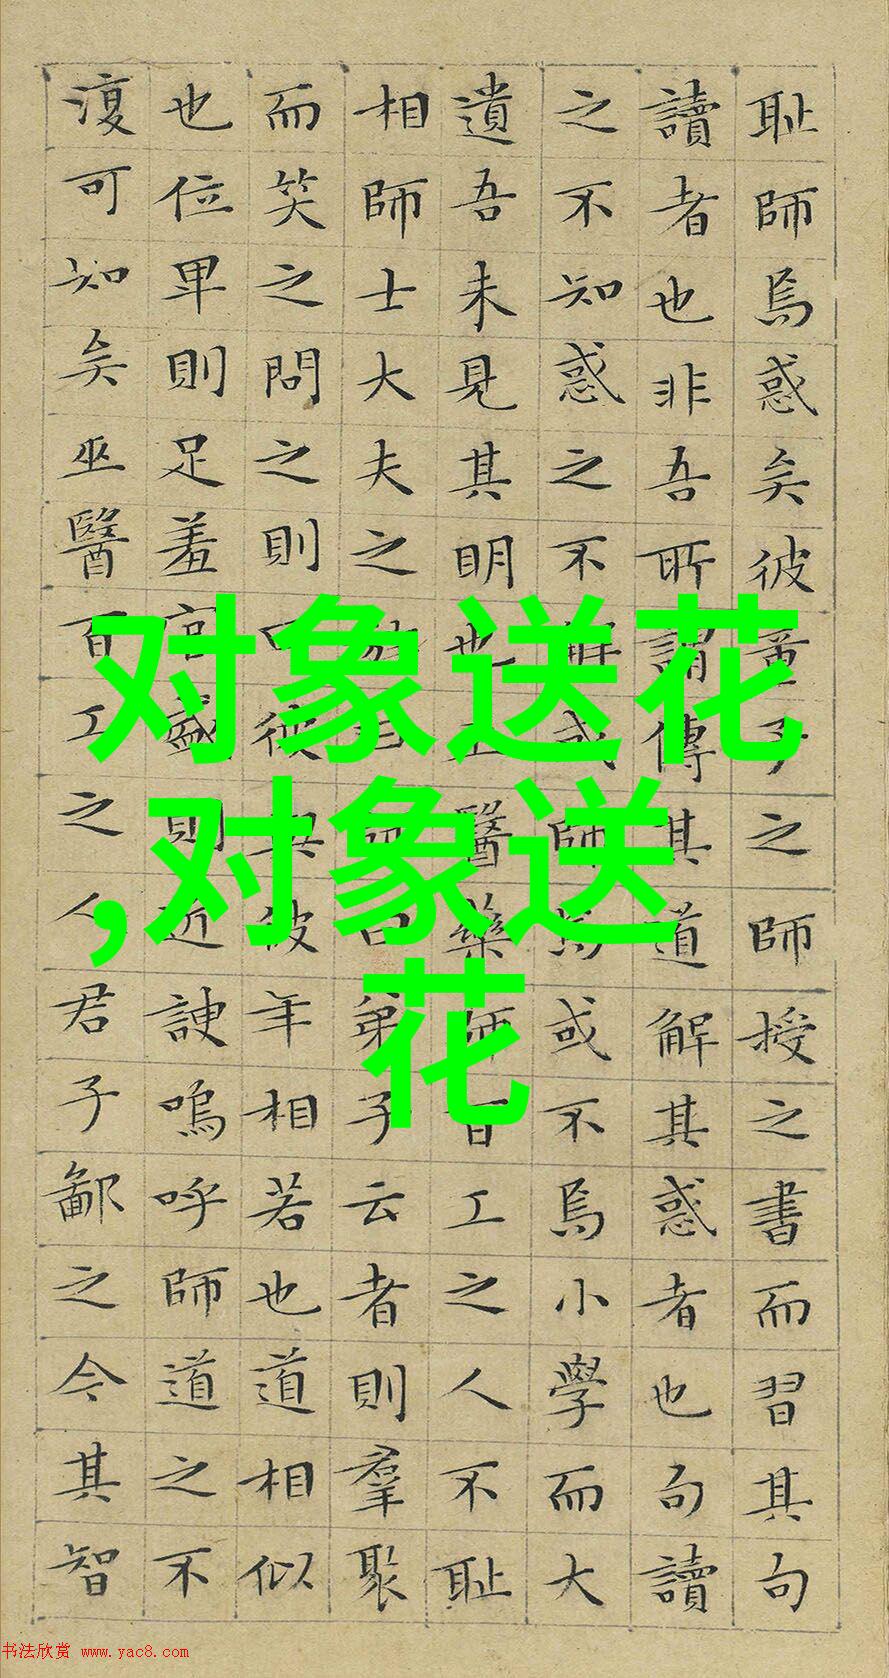 耻師焉惑矣彼童子之師授之書而習其句
讀者也非吾所謂傳其道解其惑者也句讀
之不知惑之不解或師焉或不焉小學而大
遺吾未見其明也巫醫藥師百工之人不耻
相師士大夫之族曰師曰弟子云者則羣聚
而笑之問之則曰彼與彼年相若也道相似
也位卑則足羞官盛則近諛嗚呼師道之不
復可知矣巫醫百工之人君子鄙之今其智
对象送花
,对象送
花
书法欣赏 www.yac8.com